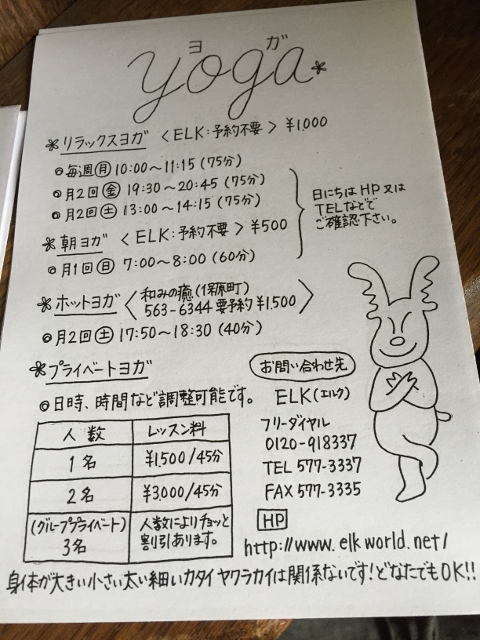 ヨガ
yoga*
*リラックスヨガ 〈ELK:予約不要〉 ¥1,000
◎毎週㊊ 10:00〜11:15 (75分)
◎月2回㊎ 19:30〜20:45 (75分)
◎月2回㊏ 13:00〜14:15 (75分)
*朝ヨガ 〈ELK:予約不要〉 ¥500
◎月1回㊐ 7:00〜8:00 (60分)
日にちはHP又は
TELなどで
ご確認下さい。
*ホットヨガ〈和みの癒(保原町)
563-6344 要予約 ¥1,500〉
◎月2回㊏ 17:50〜18:30 (40分)
*プライベートヨガ
◎日時、時間など調整可能です。
人数 レッスン料
1名 ¥1,500/45分
2名 ¥3,000/45分
(グループプライベート) 3名 人数によりチョッと割引あります。
お問い合わせ先
ELK(エルク)
フリーダイヤル
0120-918337
TEL 577-3337
FAX 577-3335
HP
http://www.elkworld.net/
身体が大きい小さい太い細いカタイヤワラカイは関係ないです!どなたでもOK!!